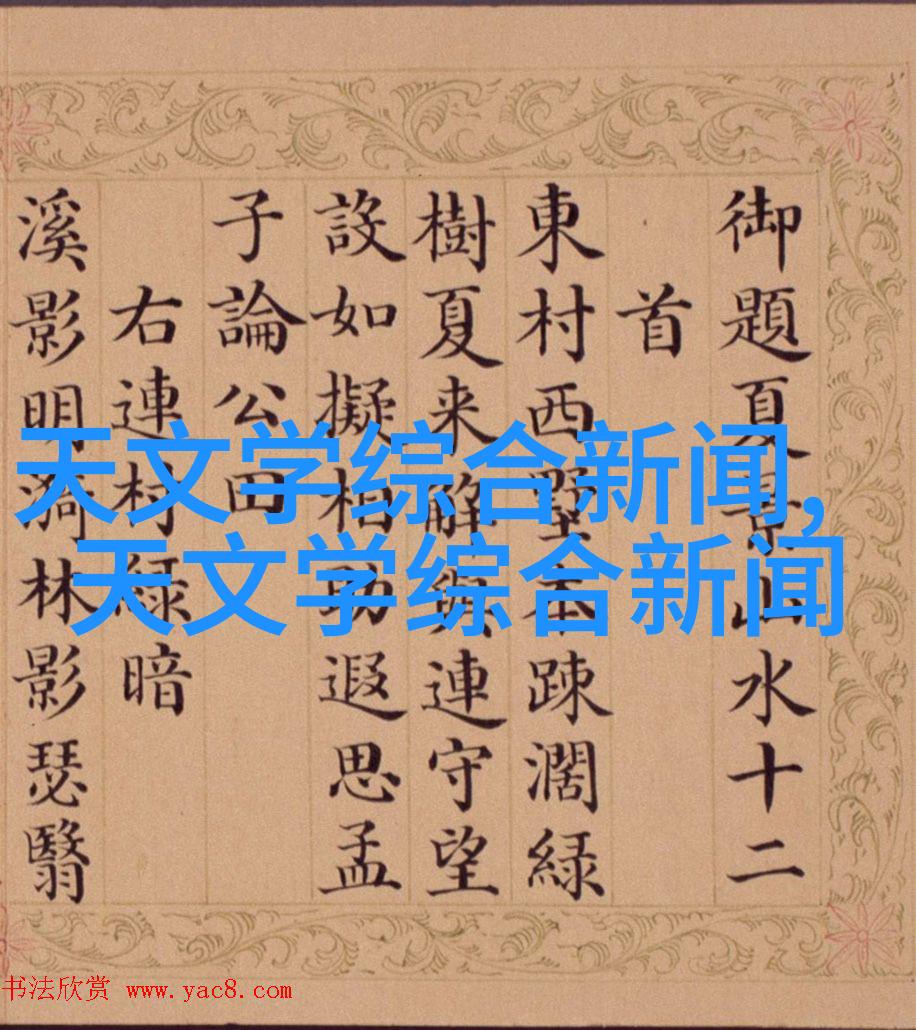 御題夏景山水十二
首
東村西墅本疎濶緑
樹夏来解與連守望
設如擬相助遐思孟
子論公田
右連村緑暗
溪影明漪林影瑟翳
天文学综合新闻,
天文学综合新闻
书法欣赏 www.yac8.com